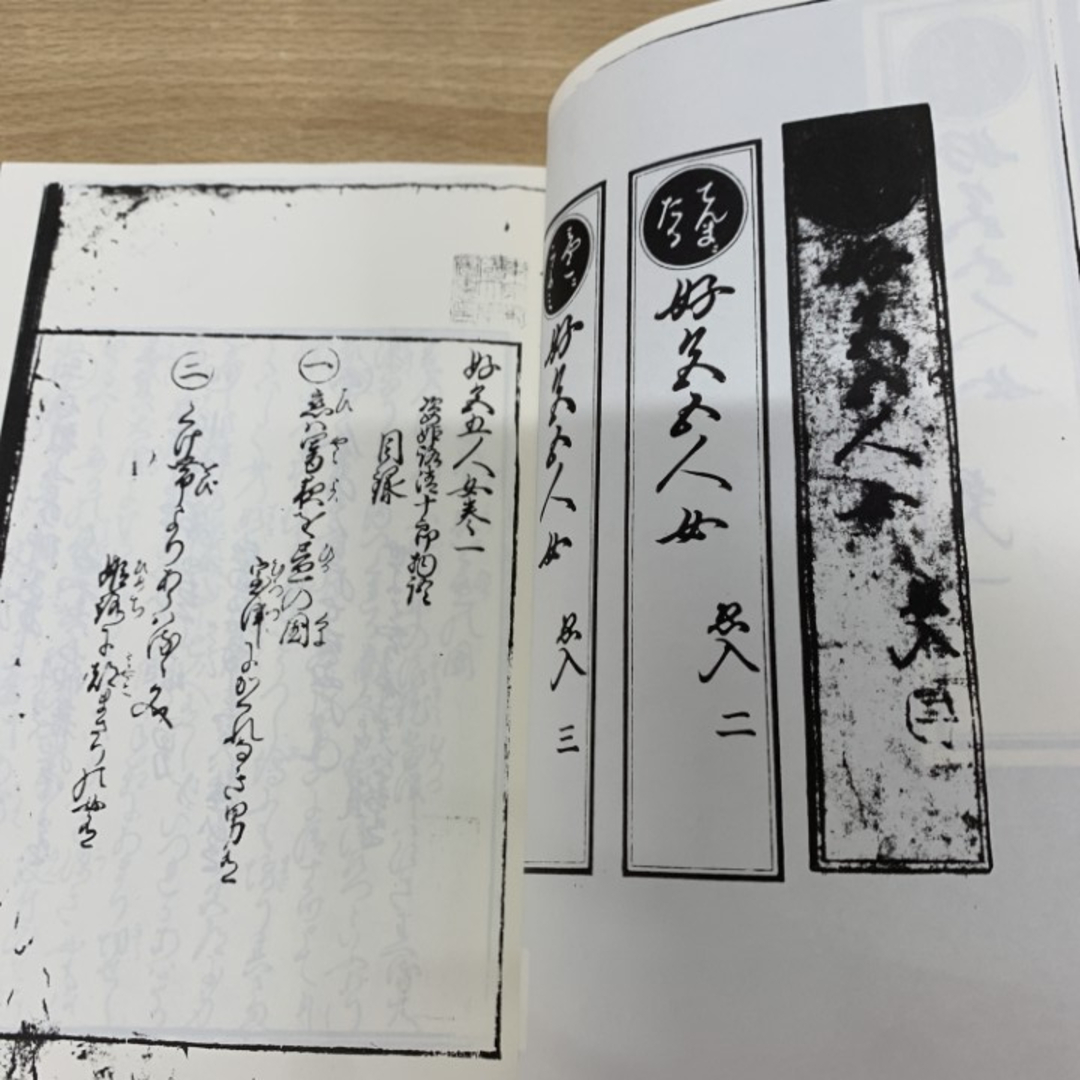 てんまニ
たる
好色五人女 ゑ入 二
好色五人女 ゑ入 三
好色五人女巻一
姿姫路清十郎物語
目録
一 恋ハ闇夜を昼の国
室津にかくれなき男有
二 くけ帯よりあらハるゝ文
姫路に都まさりの女有